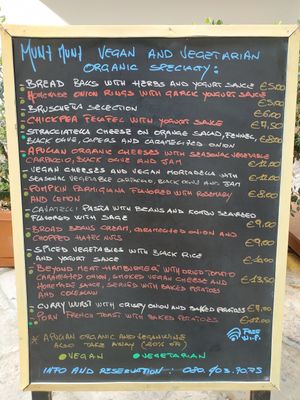 MUNÌ MUNÌ VEGAN AND VEGETARIAN
ORGANIC SPECIALTY:
BREAD BALLS WITH HERBS AND YOGURT SAUCE €5.00
HOMEMADE ONION RINGS WITH GARLIC YOGURT SAUCE
BRUSCHETTA SELECTION €6.00
CHICKPEA FELAFEL WITH YOGURT SAUCE €7.50
STRACCIATELLA CHEESE ON ORANGE SALAD, FENNEL,
BLACK OLIVE, CAPERS AND CARAMELIZED ONION
APULIAN ORGANIC CHEESES WITH SEASONAL VEGETABLE
CARPACCIO, BLACK OLIVE AND JAM
VEGAN CHEESES AND VEGAN MORTADELLA WITH
SEASONAL VEGETABLE CARPACCIO, BLACK OLIVE AND JAM
PUMPKIN PARMIGIANA FLAVORED WITH ROSEMARY €8.00
AND LEMON
CAVATELLI PASTA WITH BEANS AND KOMBU SEAWEED
FLAVORED WITH SAGE €9.00
BROAD BEANS CREAM, CARAMELIZED ONION AND
CHOPPED HAZELNUTS €9.00
SPICED VEGETABLES WITH BLACK RICE
AND YOGURT SAUCE
BEYOND MEAT HAMBURGER, WITH DRIED TOMATO
CARAMELIZED ONION, SMOKED VEGAN CHEESE AND €13.50
HOMEMADE SAUCE, SERVED WITH BAKED POTATOES
AND COLESLAW
CURRY WURST WITH CRISPY ONION AND BAKED POTATOES
FRENCH TOAST WITH BAKED POTATOES
* APULIAN ORGANIC AND VEGAN WINE FREE
ALSO TAKE AWAY WI-FI
VEGAN VEGETARIAN
INFO AND RESERVATION: 080.403.7073